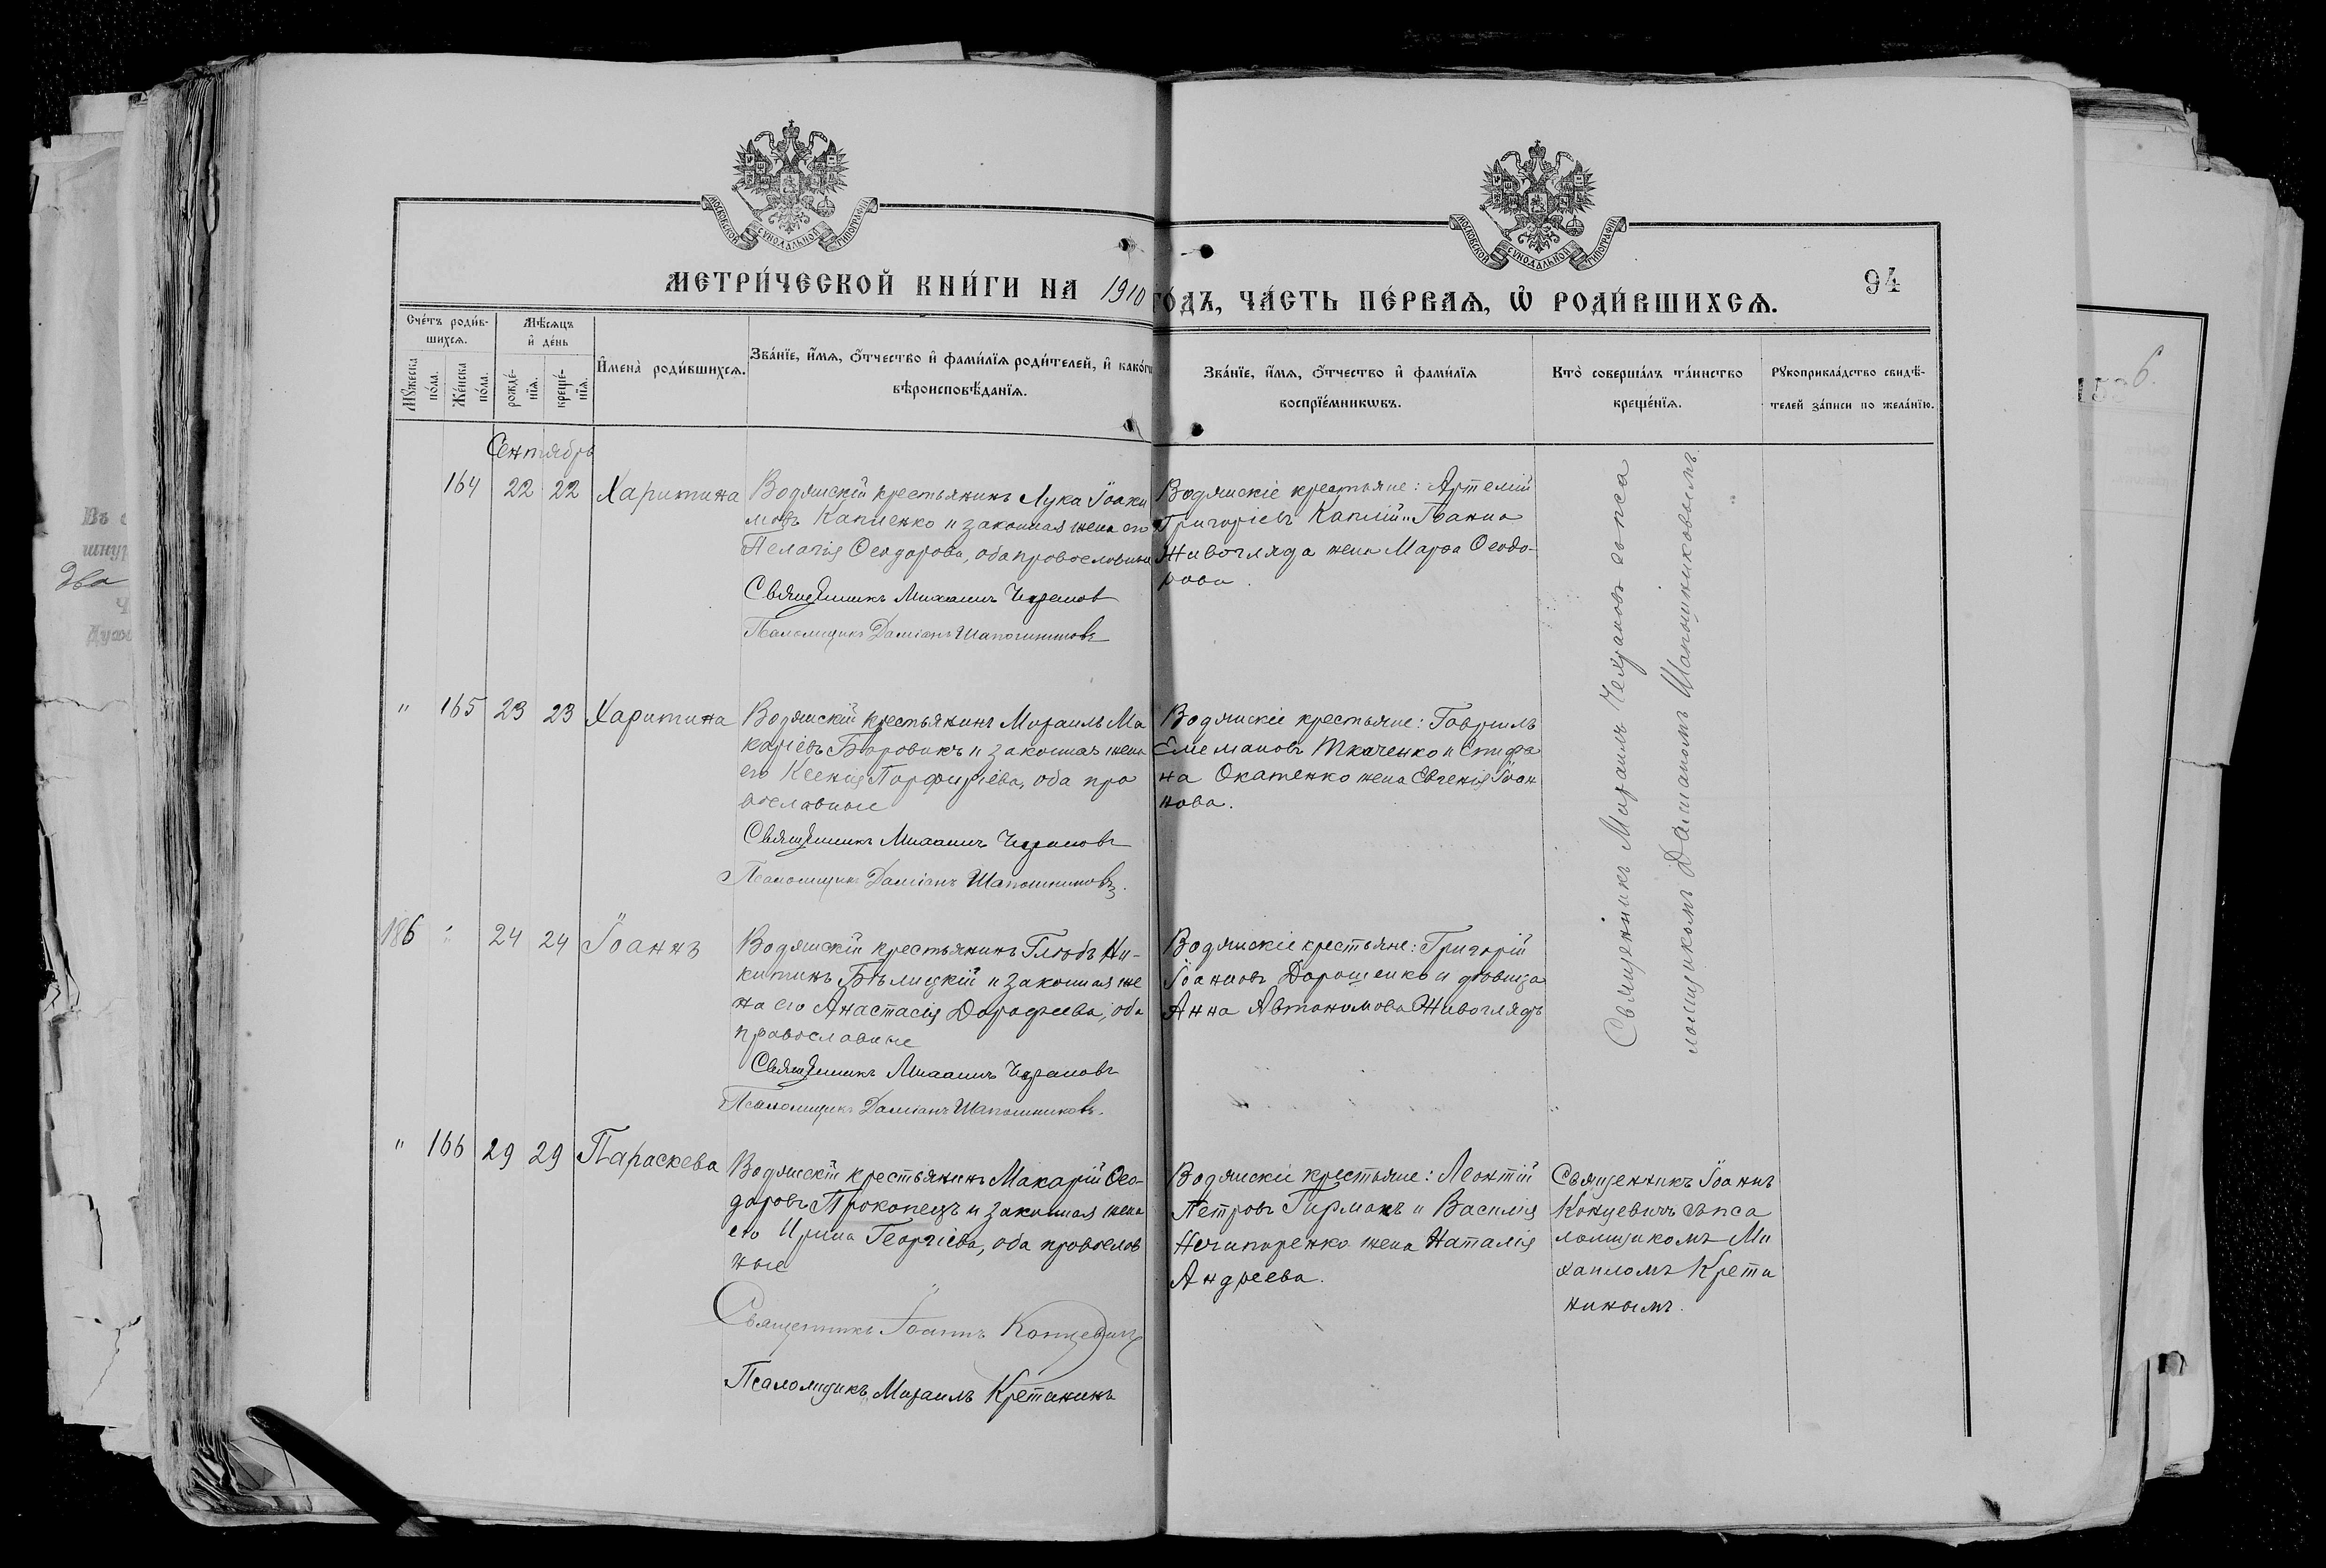 МОСКОВСКОЙ СѴНОДАЛЬНОЙ ТИПОГРАФІИ
МОСКОВСКОЙ СѴНОДАЛЬНОЙ ТИПОГРАФІИ
МЕТРИ́ЧЕСКОЙ КНИ́ГИ НА 1910 ГО́ДЪ, ЧА́СТЬ ПЕ́РВАѦ, Ѿ РОДИ́ВШИХСѦ.
94
Сче́тъ роди́в-
шихсѧ.
Мꙋ́жеска
по́ла.
Же́нска
по́ла.
Мѣ́сѧцъ
и҆ де́нь
рожде́-
нїѧ.
креще́-
нїѧ.
И҆мена̀ роди́вшихсѧ.
Зва́нїе, и҆́мѧ, ѻ҆́тчество и҆ фами́лїѧ роди́телей, и҆ како́гѡ
вѣроисповѣ́данїѧ.
Зва́нїе, и҆́мѧ, ѻ҆́тчество и҆ фами́лїѧ
воспрїе́мникѡвъ.
Кто̀ соверша́лъ та́инство
креще́нїѧ.
Рꙋкоприкла́дство свидѣ́-
телей за́писи по жела́нїю.
Сентябрь
164 22 22 Харитина
Водянскій крестьянинъ Лука Іоаки
мовъ Капленко и законная жена его
Пелагія Ѳеодорова, оба православные
Священникъ Михаилъ Чехрановъ
Псаломщикъ Даміанъ Шапошниковъ
Водянскіе крестьяне: Артемій
Григоріевъ Каплій и Іоанна
Живогляда жена Марѳа Ѳеодо-
рова.
" 165 23 23 Харитина
Водянскій крестьянинъ Михаилъ Ма
каріевъ Боровикъ и законная жена
его Ксенія Порфиріева, оба пра
вославные
Священникъ Михаилъ Чехрановъ
Псаломщикъ Даміанъ Шапошниковъ.
Водянскіе крестьяне: Гавриилъ
Ткаченко и Стефа
на Окатенко жена Евгенія Іоан
нова.
186 " 24 24 Іоаннъ
Водянскій крестьянинъ Глѣбъ Ни-
китинъ Бѣлицкій и законная же
на его Анастасія Дорофеева, оба
православные
Священникъ Михаилъ Чехрановъ
Псаломщикъ Даміанъ Шапошниковъ.
Водянскіе крестьяне: Григорій
Іоанновъ Дорошенко и дѣвица
Анна Автономова Живоглядъ
Священникъ Михаилъ Чехрановъ съ пса
ломщикомъ Даміаномъ Шапошниковымъ.
" 166 29 29 Параскева
Водянскій крестьянинъ Макарій Ѳео-
доровъ Прокопецъ и законная жена
его Ирина Георгіева, оба православ
ные
Священникъ Іоаннъ Концевичъ
Псаломщикъ Михаилъ Кретининъ
Водянскіе крестьяне: Леонтій
Петровъ Гирманъ и Василія
Нечипоренко жена Наталія
Андреева.
Священникъ Іоаннъ
Концевичъ съ пса
ломщикомъ Ми
хаиломъ Крети
нинымъ.
шнур
два
6.